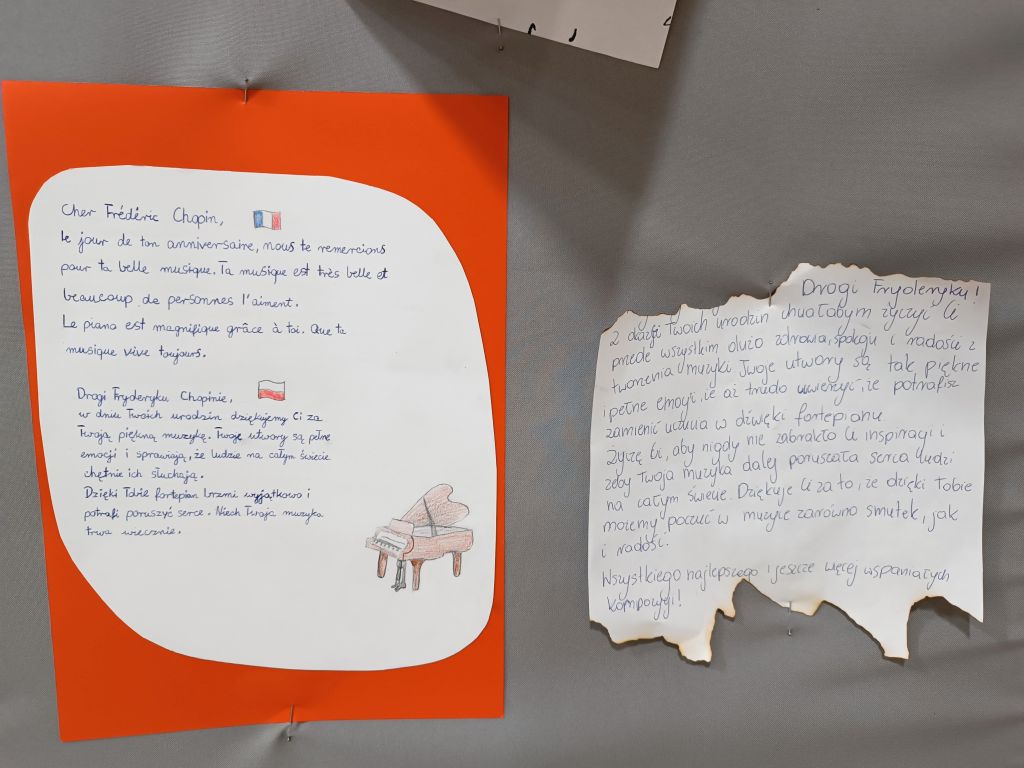 Cher Frédéric Chopin,
le jour de ton anniversaire, nous te remercions
pour ta belle musique. Ta musique est très belle et
beaucoup de personnes l'aiment.
Le piano est magnifique grâce à toi. Que ta
musique vive toujours.
Drogi Fryderyku Chopinie,
w dniu Twoich urodzin dziękujemy Ci za
Twoją piękną muzykę. Twoje utwory są pełne
emocji i sprawiają, że ludzie na całym świecie
chętnie ich słuchają.
Dzięki Tobie fortepian brzmi wyjątkowo i
potrafi poruszyć serce. Niech Twoja muzyka
trwa wiecznie.
Drogi Fryderyku!
Z okazji Twoich urodzin chciałabym życzyć Ci
przede wszystkim dużo zdrowia, spokoju i radości z
tworzenia muzyki. Twoje utwory są tak piękne
i pełne emocji, że aż trudno uwierzyć, że potrafisz
zamienić uczucia w dźwięki fortepianu.
Życzę Ci, aby nigdy nie zabrakło Ci inspiracji i
żeby Twoja muzyka dalej poruszała serca ludzi
na całym świecie. Dziękuję Ci za to, że dzięki Tobie
możemy poczuć w muzyce zarówno smutek, jak
i radość.
Wszystkiego najlepszego i jeszcze więcej wspaniałych
kompozycji!